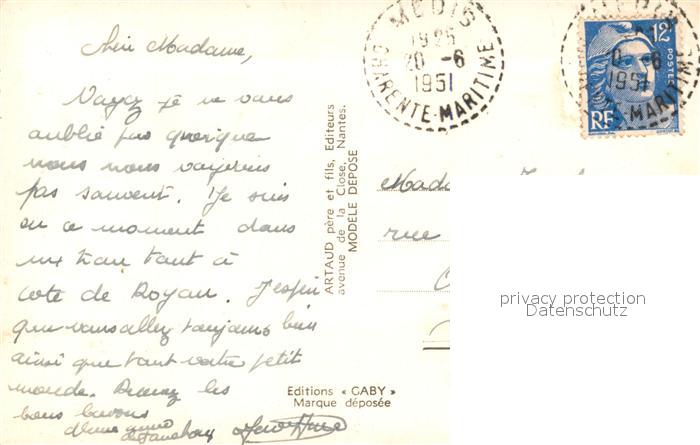 Madame,
Voyez je ne vous
oublie pas quoique
nous nous voyions
pas souvent. Je suis
en ce moment dans
un trou tout à
cote de Royan. J'espère
que vous allez toujours bien
ainsi que tout votre petit
monde. Recevez les
bons baisers
d'une
ARTAUD père et fils, Editeurs
avenue de la Close, Nantes.
MODELE DEPOSE
Editions « GABY »
Marque déposée
MEDIS
1925
20 -6
1951
CHARENTE-MARITIME
MEDIS
20 -6
1951
CHARENTE-MARITIME
12F
POSTES
RF
rue
privacy protection
Datenschutz